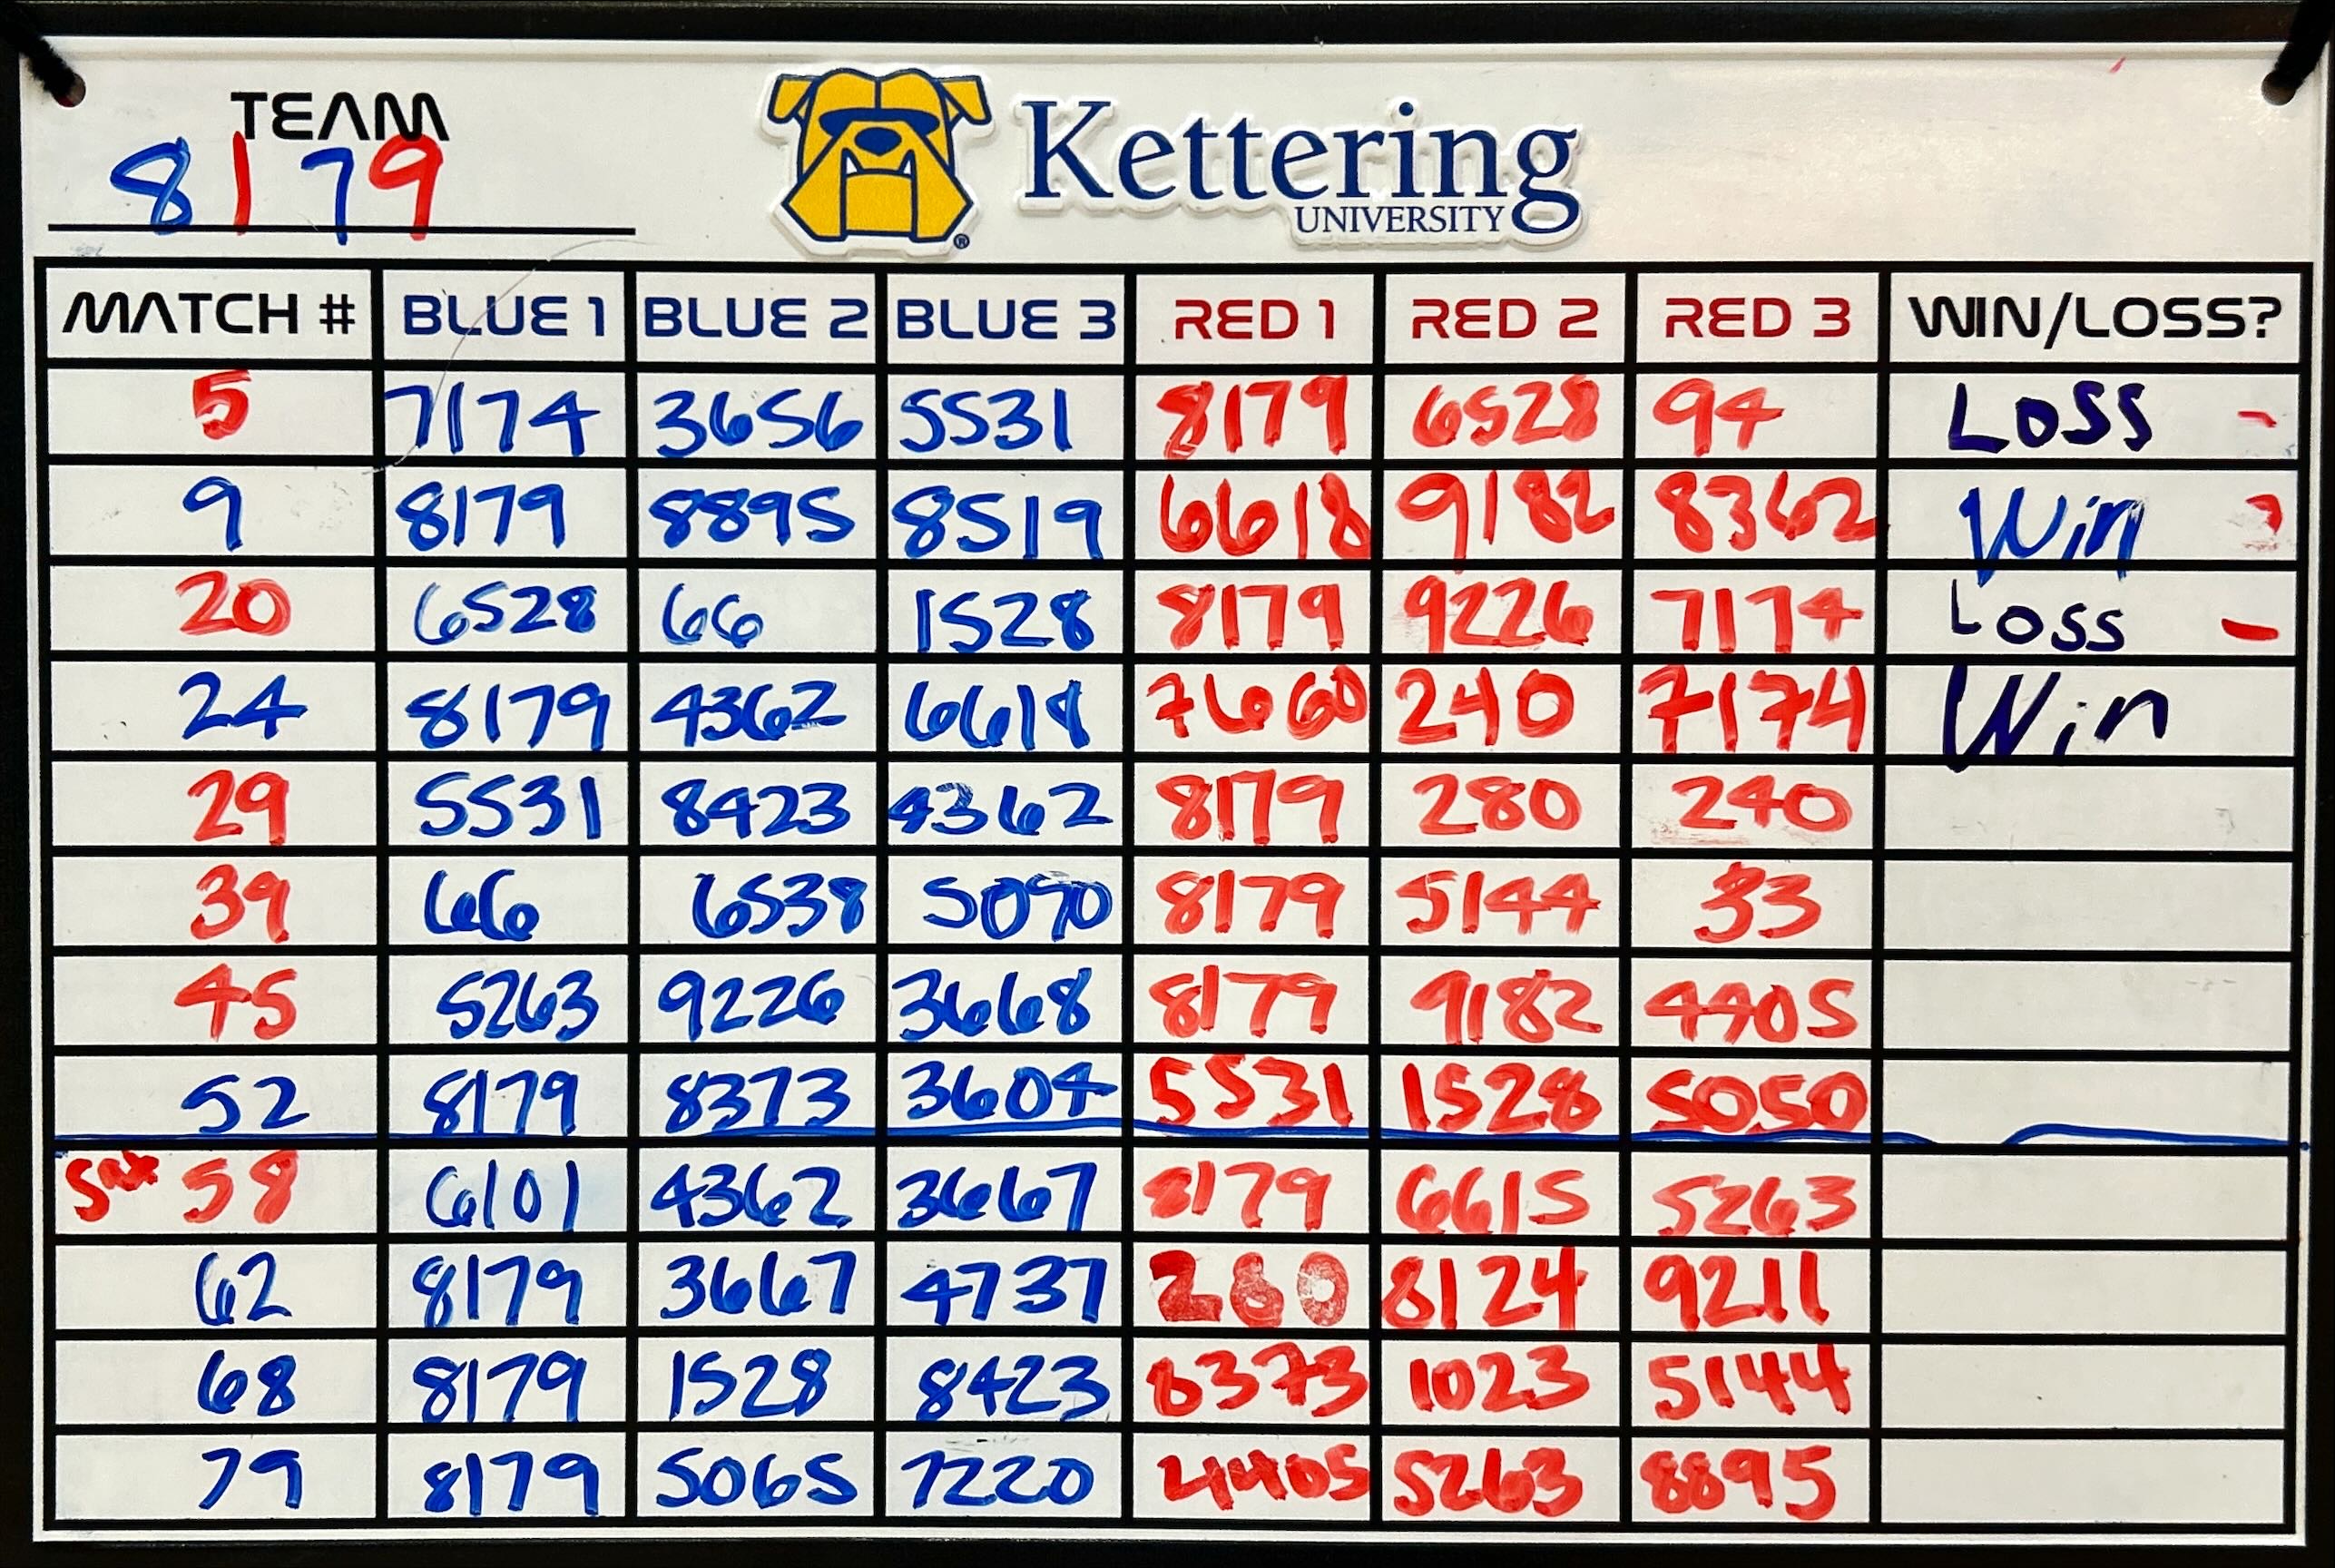 TEAM
8179
Kettering
UNIVERSITY
MATCH # BLUE 1 BLUE 2 BLUE 3 RED 1 RED 2 RED 3 WIN/LOSS?
5 7174 3656 5531 8179 6528 94 Loss
9 8179 8895 8519 6618 9182 8362 Win
20 6528 66 1528 8179 9226 7174 Loss
24 8179 4362 6618 7660 240 7174 Win
29 5531 8423 4362 8179 280 240
39 66 6538 5090 8179 5144 33
45 5263 9226 3668 8179 9182 4405
52 8179 8373 3604 5531 1528 5050
Sat 58 6101 4362 3667 8179 6615 5263
62 8179 3667 4737 280 8124 9211
68 8179 1528 8423 8373 1023 5144
79 8179 5065 7220 4405 5263 8895